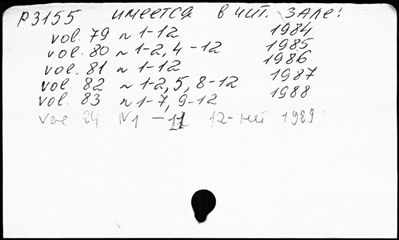 P3155 имеется в чит. зале!
vol. 79 N 1-12 1984
vol. 80 N 1-2, 4-12 1985
vol. 81 N 1-12 1986
vol. 82 N 1-2, 5, 8-12 1987
vol. 83 N 1-7, 9-12 1988
vol 84 N1-11 12-нет 1989